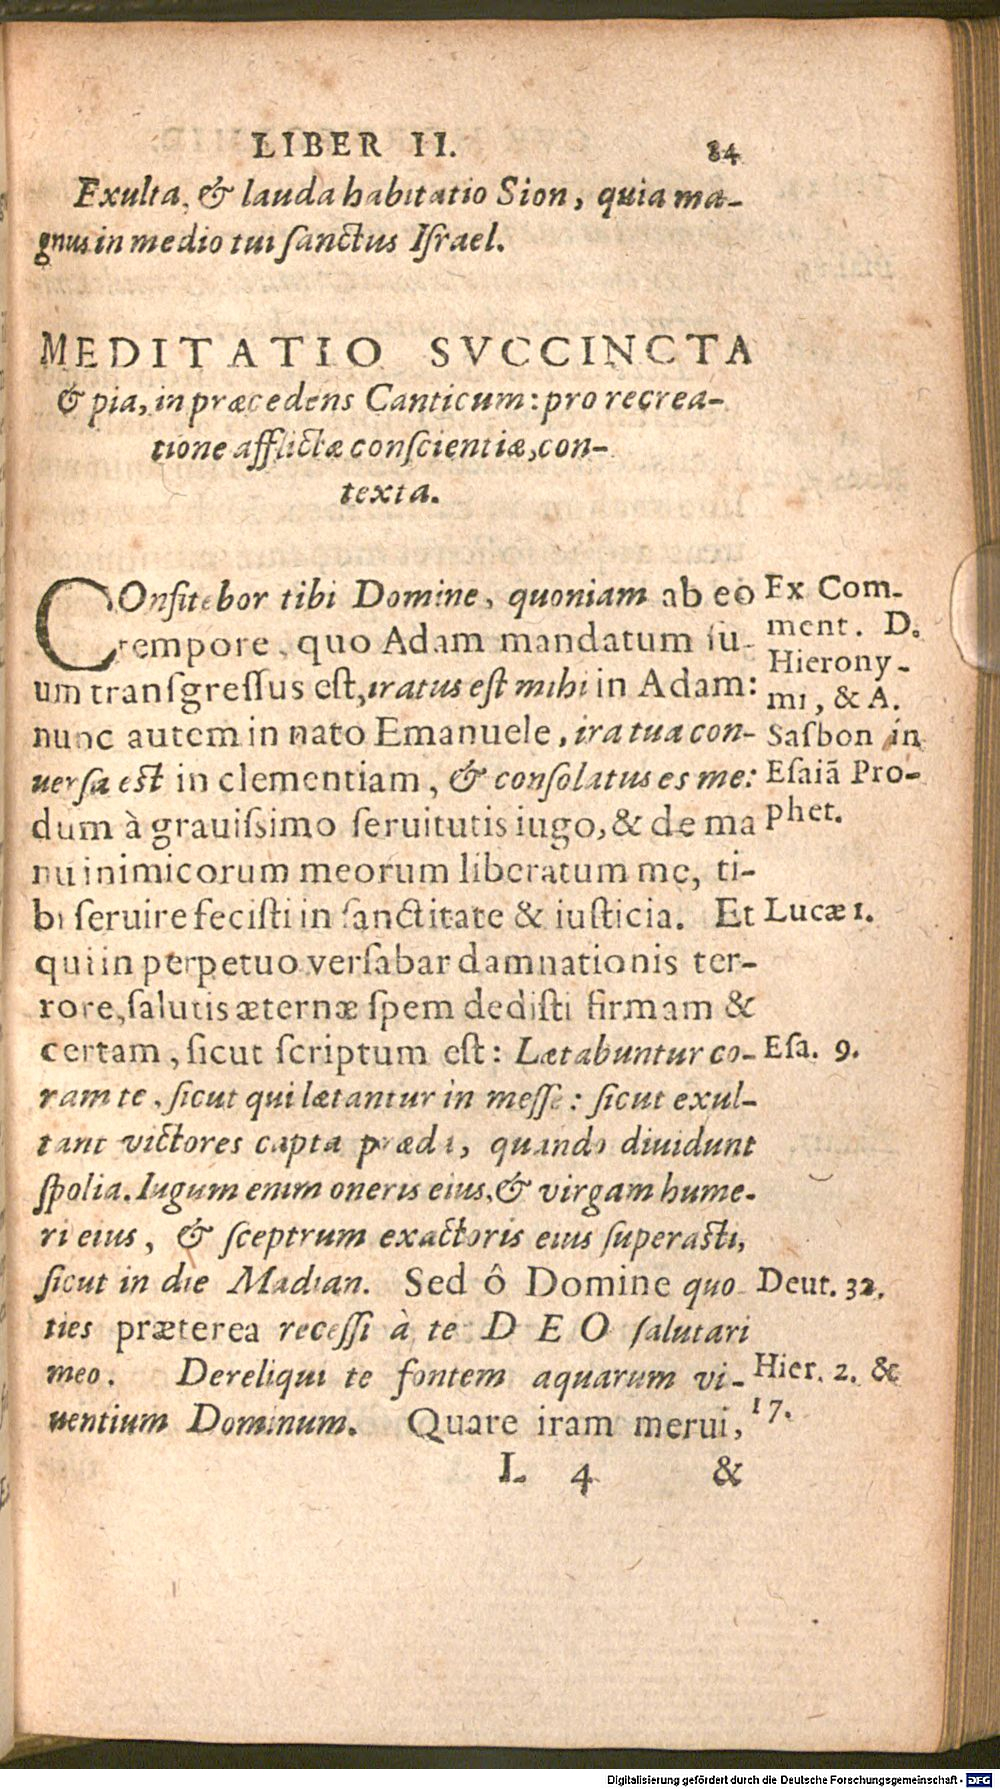 LIBER II. 84
Exulta, & lauda habitatio Sion, quia ma-
gnus in medio tui ſanctus Iſrael.
MEDITATIO SVCCINCTA
& pia, in præcedens Canticum: pro recrea-
tione afflictæ conſcientiæ, con-
texta.
COnfitebor tibi Domine, quoniam ab eo
tempore, quo Adam mandatum ſu-
um tranſgreſſus eſt, iratus eſt mihi in Adam:
nunc autem in nato Emanuele, ira tua con-
uerſa eſt in clementiam, & conſolatus es me:
dum à grauiſsimo ſeruitutis iugo, & de ma
nu inimicorum meorum liberatum me, ti-
bi ſeruire feciſti in ſanctitate & iuſticia. Et
qui in perpetuo verſabar damnationis ter-
rore, ſalutis æternæ ſpem dediſti firmam &
certam, ſicut ſcriptum eſt: Lætabuntur co-
ram te, ſicut qui lætantur in meſſe: ſicut exul-
tant victores capta præda, quando diuidunt
ſpolia. Iugum enim oneris eius, & virgam hume-
ri eius, & ſceptrum exactoris eius ſuperaſti,
ſicut in die Madian. Sed ô Domine quo
ties præterea receſſi à te DEO ſalutari
meo. Dereliqui te fontem aquarum vi-
uentium Dominum. Quare iram merui,
L 4 &
Ex Com-
ment. D.
Hierony-
mi, & A.
Saſbon in
Eſaiā Pro-
phet.
Lucæ 1.
Eſa. 9.
Deut. 32.
Hier. 2. &
17.
Digitalisierung gefördert durch die Deutsche Forschungsgemeinschaft - DFG